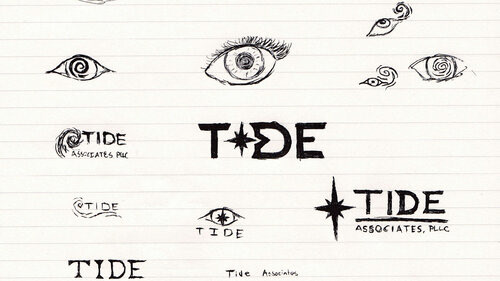 TIDE
ASSOCIATES PLLC
TIDE
TIDE
ASSOCIATES, PLLC
TIDE
TIDE
TIDE
Tide Associates